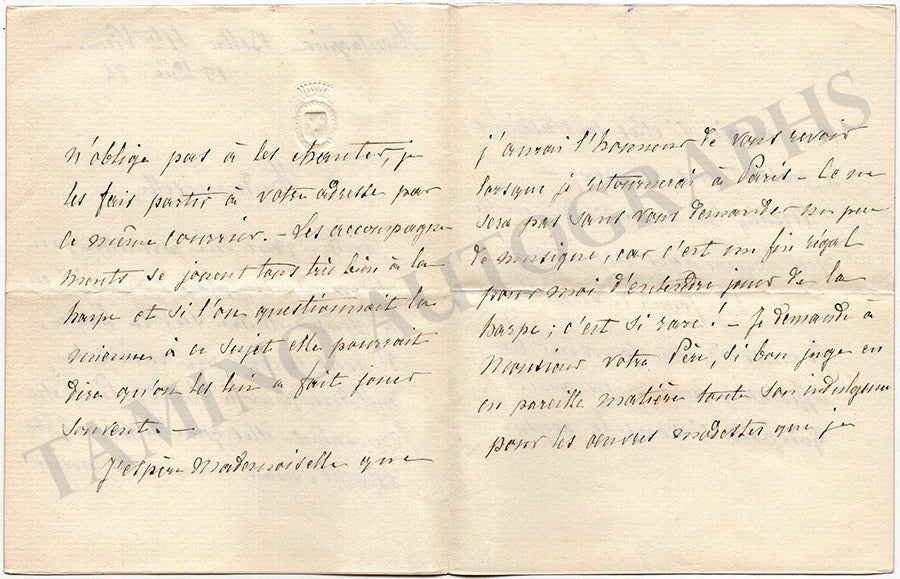 n'oblige pas à les chanter, je
les fais partir à votre adresse par
ce même courrier. - Les accompagne
ments se jouent tous très bien à la
harpe et si l'on questionnait la
mienne à ce sujet elle pourrait
dire qu'on les lui a fait jouer
souvent. -
J'espère Mademoiselle que
j'aurai l'honneur de vous revoir
lorsque je retournerai à Paris - Ce ne
sera pas sans vous demander un peu
de musique, car c'est un fin régal
pour moi d'entendre jouer de la
harpe; c'est si rare! - Je demande à
Monsieur votre Père, si bon juge en
en pareille matière toute son indulgence
pour les œuvres modestes que je
TAMINO AUTOGRAPHS